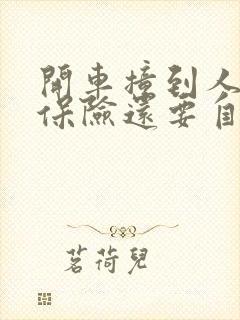 開車撞到人
保險還要自
茗荷兒